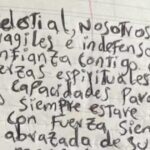 elestial, Nosotros
ragiles e indefenso
nfianza contigo
erzas espirituales
capacidades para
siempre estare
con fuerza sien
abrazada de su